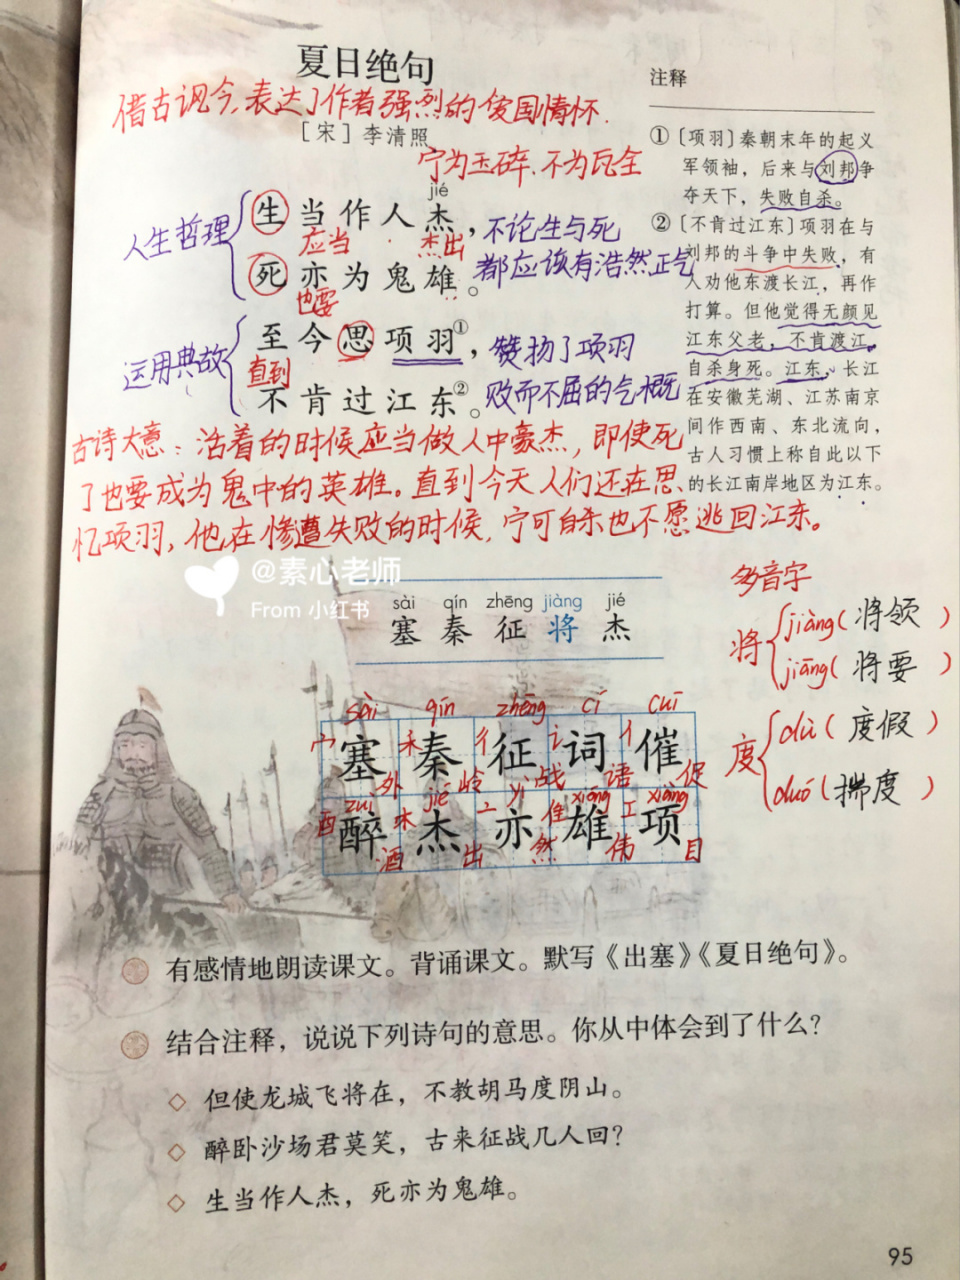 夏日绝句
借古讽今,表达了作者强烈的爱国情怀.
[宋] 李清照
宁为玉碎.不为瓦全
人生哲理
jié
生当作人杰，
不论生与死
应当
杰出
死亦为鬼雄。
都应该有浩然正气
也要
运用典故
至今思项羽①，
赞扬了项羽
直到
不肯过江东②。
败而不屈的气概
注释
①〔项羽〕秦朝末年的起义
军领袖，后来与刘邦争
夺天下，失败自杀。
②〔不肯过江东〕项羽在与
刘邦的斗争中失败，有
人劝他东渡长江，再作
打算。但他觉得无颜见
江东父老，不肯渡江，
自杀身死。江东，长江
在安徽芜湖、江苏南京
间作西南、东北流向，
古人习惯上称自此以下
的长江南岸地区为江东。
古诗大意：活着的时候应当做人中豪杰，即使死
了也要成为鬼中的英雄。直到今天人们还在思
忆项羽，他在惨遭失败的时候，宁可自杀也不愿逃回江东。
@素心老师
From 小红书
sài qín zhēng jiàng jié
塞 秦 征 将 杰
多音字
将
jiàng( 将领 )
jiāng( 将要 )
度
dù( 度假 )
duó( 揣度 )
sài qín zhēng cí cuī
宀 禾 彳 讠 亻
塞 秦 征 词 催
外 岭 战 语 促
zuì jié yì xióng xiàng
酉 木 亠 隹 工
醉 杰 亦 雄 项
酒 出 然 伟 目
有感情地朗读课文。背诵课文。默写《出塞》《夏日绝句》。
结合注释，说说下列诗句的意思。你从中体会到了什么？
◇ 但使龙城飞将在，不教胡马度阴山。
◇ 醉卧沙场君莫笑，古来征战几人回？
◇ 生当作人杰，死亦为鬼雄。
95